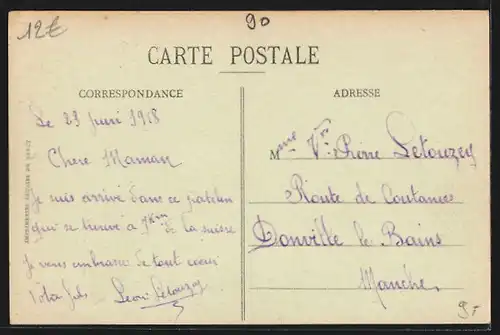 12€
90
CARTE POSTALE
CORRESPONDANCE
ADRESSE
Le 23 juin 1918
Chere Maman
Je suis arrivé dans ce patelin
qui se trouve à 7km de la suisse
Je vous embrasse de tout coeur
Votre fils Leon Letouzey
Mme Vve Pierre Letouzey
Route de Coutances
Donville le Bains
Manche